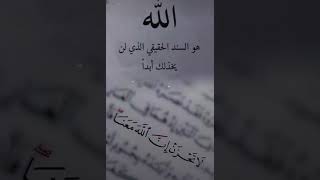 الله
هو السند الحقيقي الذي لن
يخذلك أبداً
لَا تَحْزَنْ إِنَّ اللَّهَ مَعَنَا